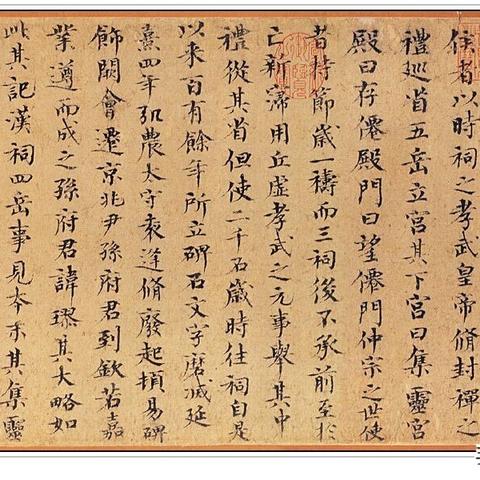 使者以時祠之孝武皇帝脩封禪之
禮巡省五岳立宮其下宮曰集靈宮
殿曰存僊殿門曰望僊門仲宗之世使
者持節歲一禱而三祠後不承前至於
亡新寖用丘虛孝武之元事舉其中
禮從其省但使二千石歲時往祠自是
以来百有餘年所立碑石文字磨滅延
熹四年弘農太守袁逢脩廢起頓易碑
飾闕會遷京兆尹孫府君到欽若嘉
業遵而成之孫府君諱璆其大略如
此其記漢祠四岳事見夲末其集靈